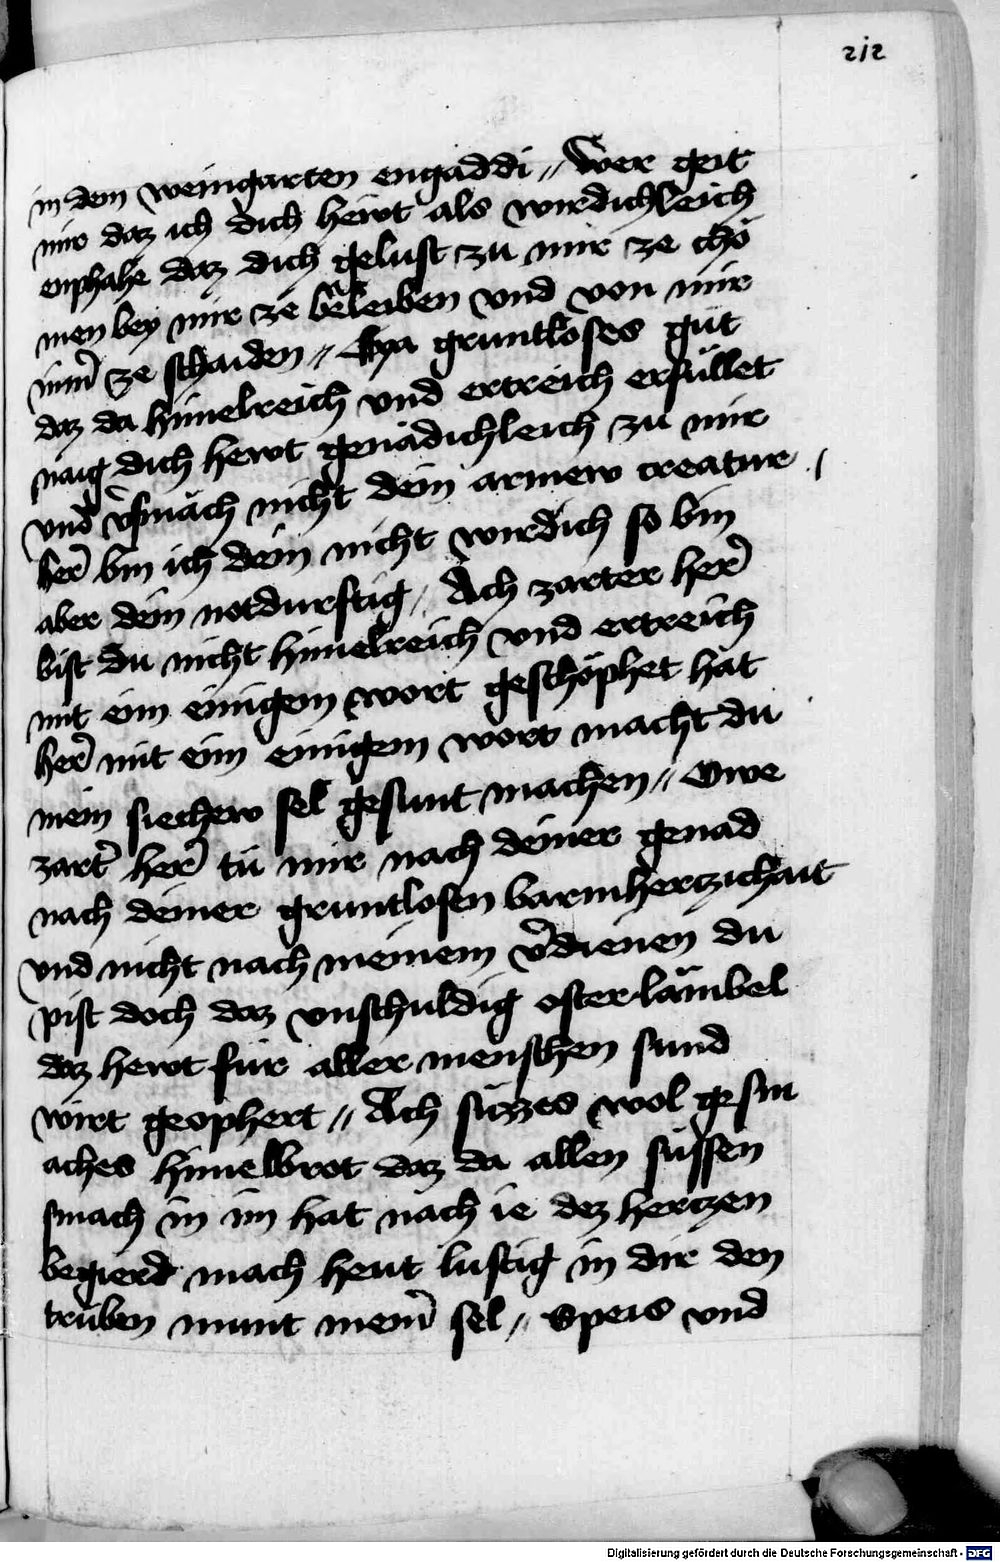 212
in dem weingarten engaddi // Wer geit
mir daz ich dich hewt als wirdichleich
enphahe daz dich gelust zu mir ze chö
men bey mir ze beleiben vnd von mir
nim̄ ze schaiden // Eya gruntloses gut
daz da himelreich vnd ertreich erfüllet
naig dich hewt genädichleich zu mir
vnd v̓smäch nicht dein armew creatur /
her̓ bin ich dein nicht wirdich so bin
aber dein notdurftig / Ach zarter her̓
bist du nicht himelreich vnd ertreich
mit eim einigem wort geschöphet hat
her̓ mit eim einigem wort macht du
mein siechew sel gesunt machen // Owe
zart̓ her̓ tu mir nach deiner genad
nach deiner gruntlosen barmherczichait
vnd nicht nach meinem v̓dienen du
pist doch daz vnschuldig osterlämbel
daz hewt für aller menschen sund
wirt geophert // Ach süzzes wol gesm
aches himelbrot daz da allen süssen
smach in im hat nach ie dez herczen
begierd mach heut lustig in dir den
trüben munt mein̓ sel // Speis vnd
Digitalisierung gefördert durch die Deutsche Forschungsgemeinschaft - DFG